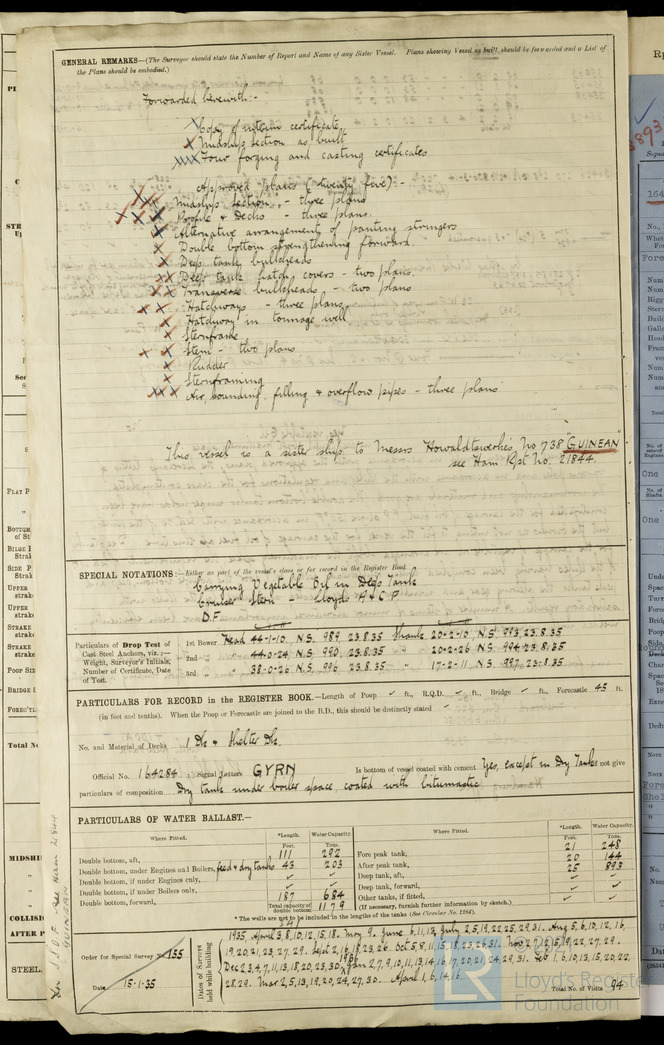 GENERAL REMARKS—(The Surveyor should state the Number of Report and Name of any Sister Vessel. Plans showing Vessel as built should be forwarded and a List of
the Plans should be embodied.)
Forwarded herewith:-
Copy of interim certificate
Midship section as built
Four forging and casting certificates
Approved plans (twenty five) -
Midship section - three plans
Profile & Decks - three plans
Alternative arrangement of panting stringers
Double bottom strengthening forward.
Deep tank bulkheads
Deep tank hatch covers - two plans.
Transverse bulkheads - two plans
Hatchways - three plans
Hatchway in tonnage well
Sternframe
Stem - two plans
Rudder
Sternframing
Air, sounding, filling & overflow pipes - three plans
This vessel is a sister ship to Messrs Howaldtswerke's No 738 "GUINEAN"
see Ham Rpt No. 21844.
SPECIAL NOTATIONS:—Either as part of the vessel's class or for record in the Register Book
Carrying Vegetable Oil in Deep Tank
Cruiser Stern - Lloyds A & C P
D.F.
Particulars of Drop Test of
Cast Steel Anchors, viz.:—
Weight, Surveyor's Initials,
Number of Certificate, Date
of Test.
1st Bower Head 44-1-10 N.S. 989 23.8.35 Shank 20-2-10 N.S. 993 23.8.35
2nd " 44-0-24 N.S. 990 23.8.35 " 20-2-26 N.S. 994 23.8.35
3rd " 38-0-26 N.S. 996 23.8.35 " 17-2-11 N.S. 997 23.8.35
PARTICULARS FOR RECORD in the REGISTER BOOK.—Length of Poop ✓ ft., R.Q.D. ✓ ft., Bridge ✓ ft., Forecastle 45 ft.
(in feet and tenths). When the Poop or Forecastle are joined to the B.D., this should be distinctly stated
No. and Material of Decks 1 Dk & Shelter Dk.
Official No. 164284 Signal Letters GYRN Is bottom of vessel coated with cement Yes, except in Dry Tanks not give
particulars of composition Dry tank under boiler space, coated with bitumastic
PARTICULARS OF WATER BALLAST.—
Where Fitted. *Length. Water Capacity. Where Fitted. *Length. Water Capacity.
Feet. Tons. Feet. Tons.
Double bottom, aft, 111 292 Fore peak tank, 21 248
Double bottom, under Engines and Boilers, feed & dry tanks 43 203 After peak tank, 20 144
Double bottom, if under Engines only, ✓ ✓ Deep tank, aft, 25 893
Double bottom, if under Boilers only, ✓ ✓ Deep tank, forward, ✓ ✓
Double bottom, forward, 187 684 Other tanks, if fitted, ✓ ✓
Total capacity of double bottom 1179 (If necessary, furnish further information by sketch.)
341
* The wells are not to be included in the lengths of the tanks (See Circular No. 1284).
Order for Special Survey No. 155
Date 15-1-35
Dates of Surveys held while building
1935. April 3, 8, 10, 12, 15, 18. May 9. June 6, 11, 13, July 2, 5, 19, 22, 25, 29, 31. Aug 5, 6, 10, 12, 16,
19, 20, 21, 23, 27, 29. Sept 2, 16, 18, 23, 26. Oct 5, 8, 11, 15, 18, 23, 26, 31. Nov 2, 7, 12, 15, 19, 22, 27, 29.
Dec 2, 3, 4, 7, 11, 13, 18, 20, 23, 30, 1936 Jan 2, 7, 9, 10, 11, 13, 14, 16, 17, 20, 21, 24, 29, 31. Feb 1, 6, 10, 13, 15, 20, 22,
28, 29. Mar 2, 5, 13, 19, 20, 24, 27, 30. April 1, 6, 14, 16.
Total No. of Visits 94
Lloyd's Register
Foundation